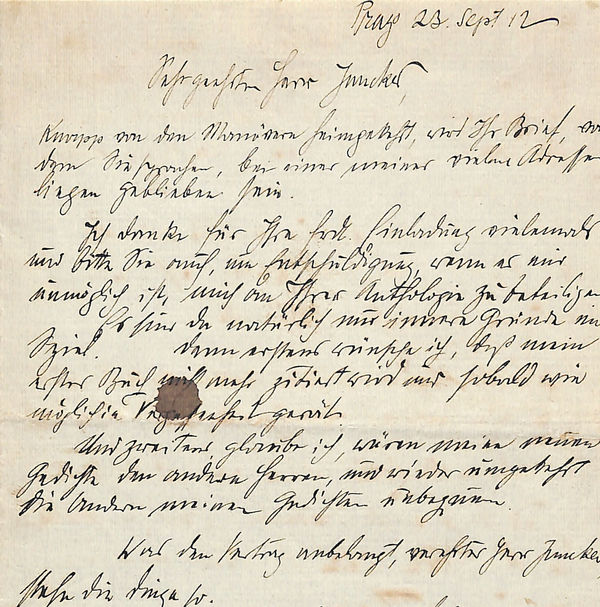 Prag 23. Sept 12
Sehr geehrter Herr Juncker,
Knapp von den Manövern heimgekehrt, wird Ihr Brief, von
dem Sie sprachen, bei einer meiner vielen Adressen
liegen geblieben sein.
Ich danke für Ihre frdl. Einladung vielemals
und bitte Sie auch, um Entschuldigung, wenn es mir
unmöglich ist, mich an Ihrer Anthologie zu beteiligen
Es sind da natürlich nur innere Gründe im
Spiel. Denn erstens wünsche ich, daß mein
erstes Buch nicht mehr zitiert wird und sobald wie
möglich in Vergessenheit gerät.
Und zweitens, glaube ich, wären meine neuen
Gedichte den andern Herren, und wieder umgekehrt
die Andern meinen Gedichten unbequem.
Was den Vertrag anbelangt, verehrter Herr Juncker,
stehn die Dinge so.